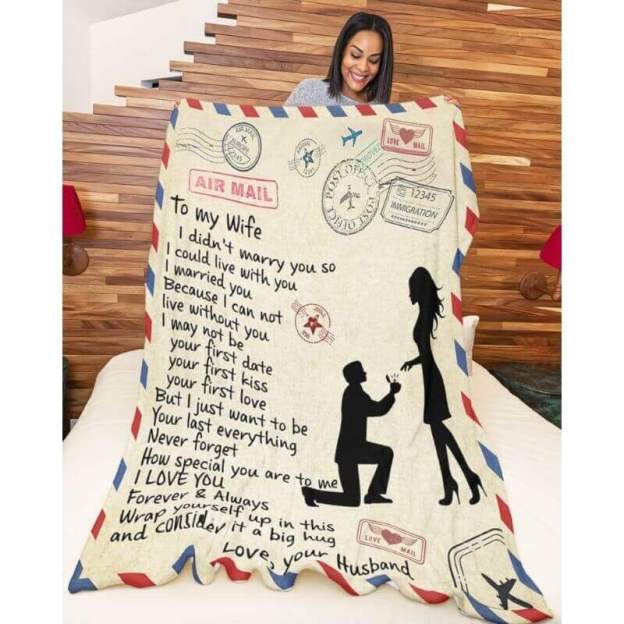 AIR MAIL
LOVE MAIL
POST OFFICE POST OFFICE
12345
IMMIGRATION
AIR MAIL
To my Wife
I didn't marry you so
I could live with you
I married you
Because I can not
live without you
I may not be
your first date
your first kiss
your first love
But I just want to be
Your last everything
Never forget
How special you are to me
I LOVE YOU
Forever & Always
Wrap yourself up in this
and consider it a big hug
Love, your Husband
LOVE MAIL